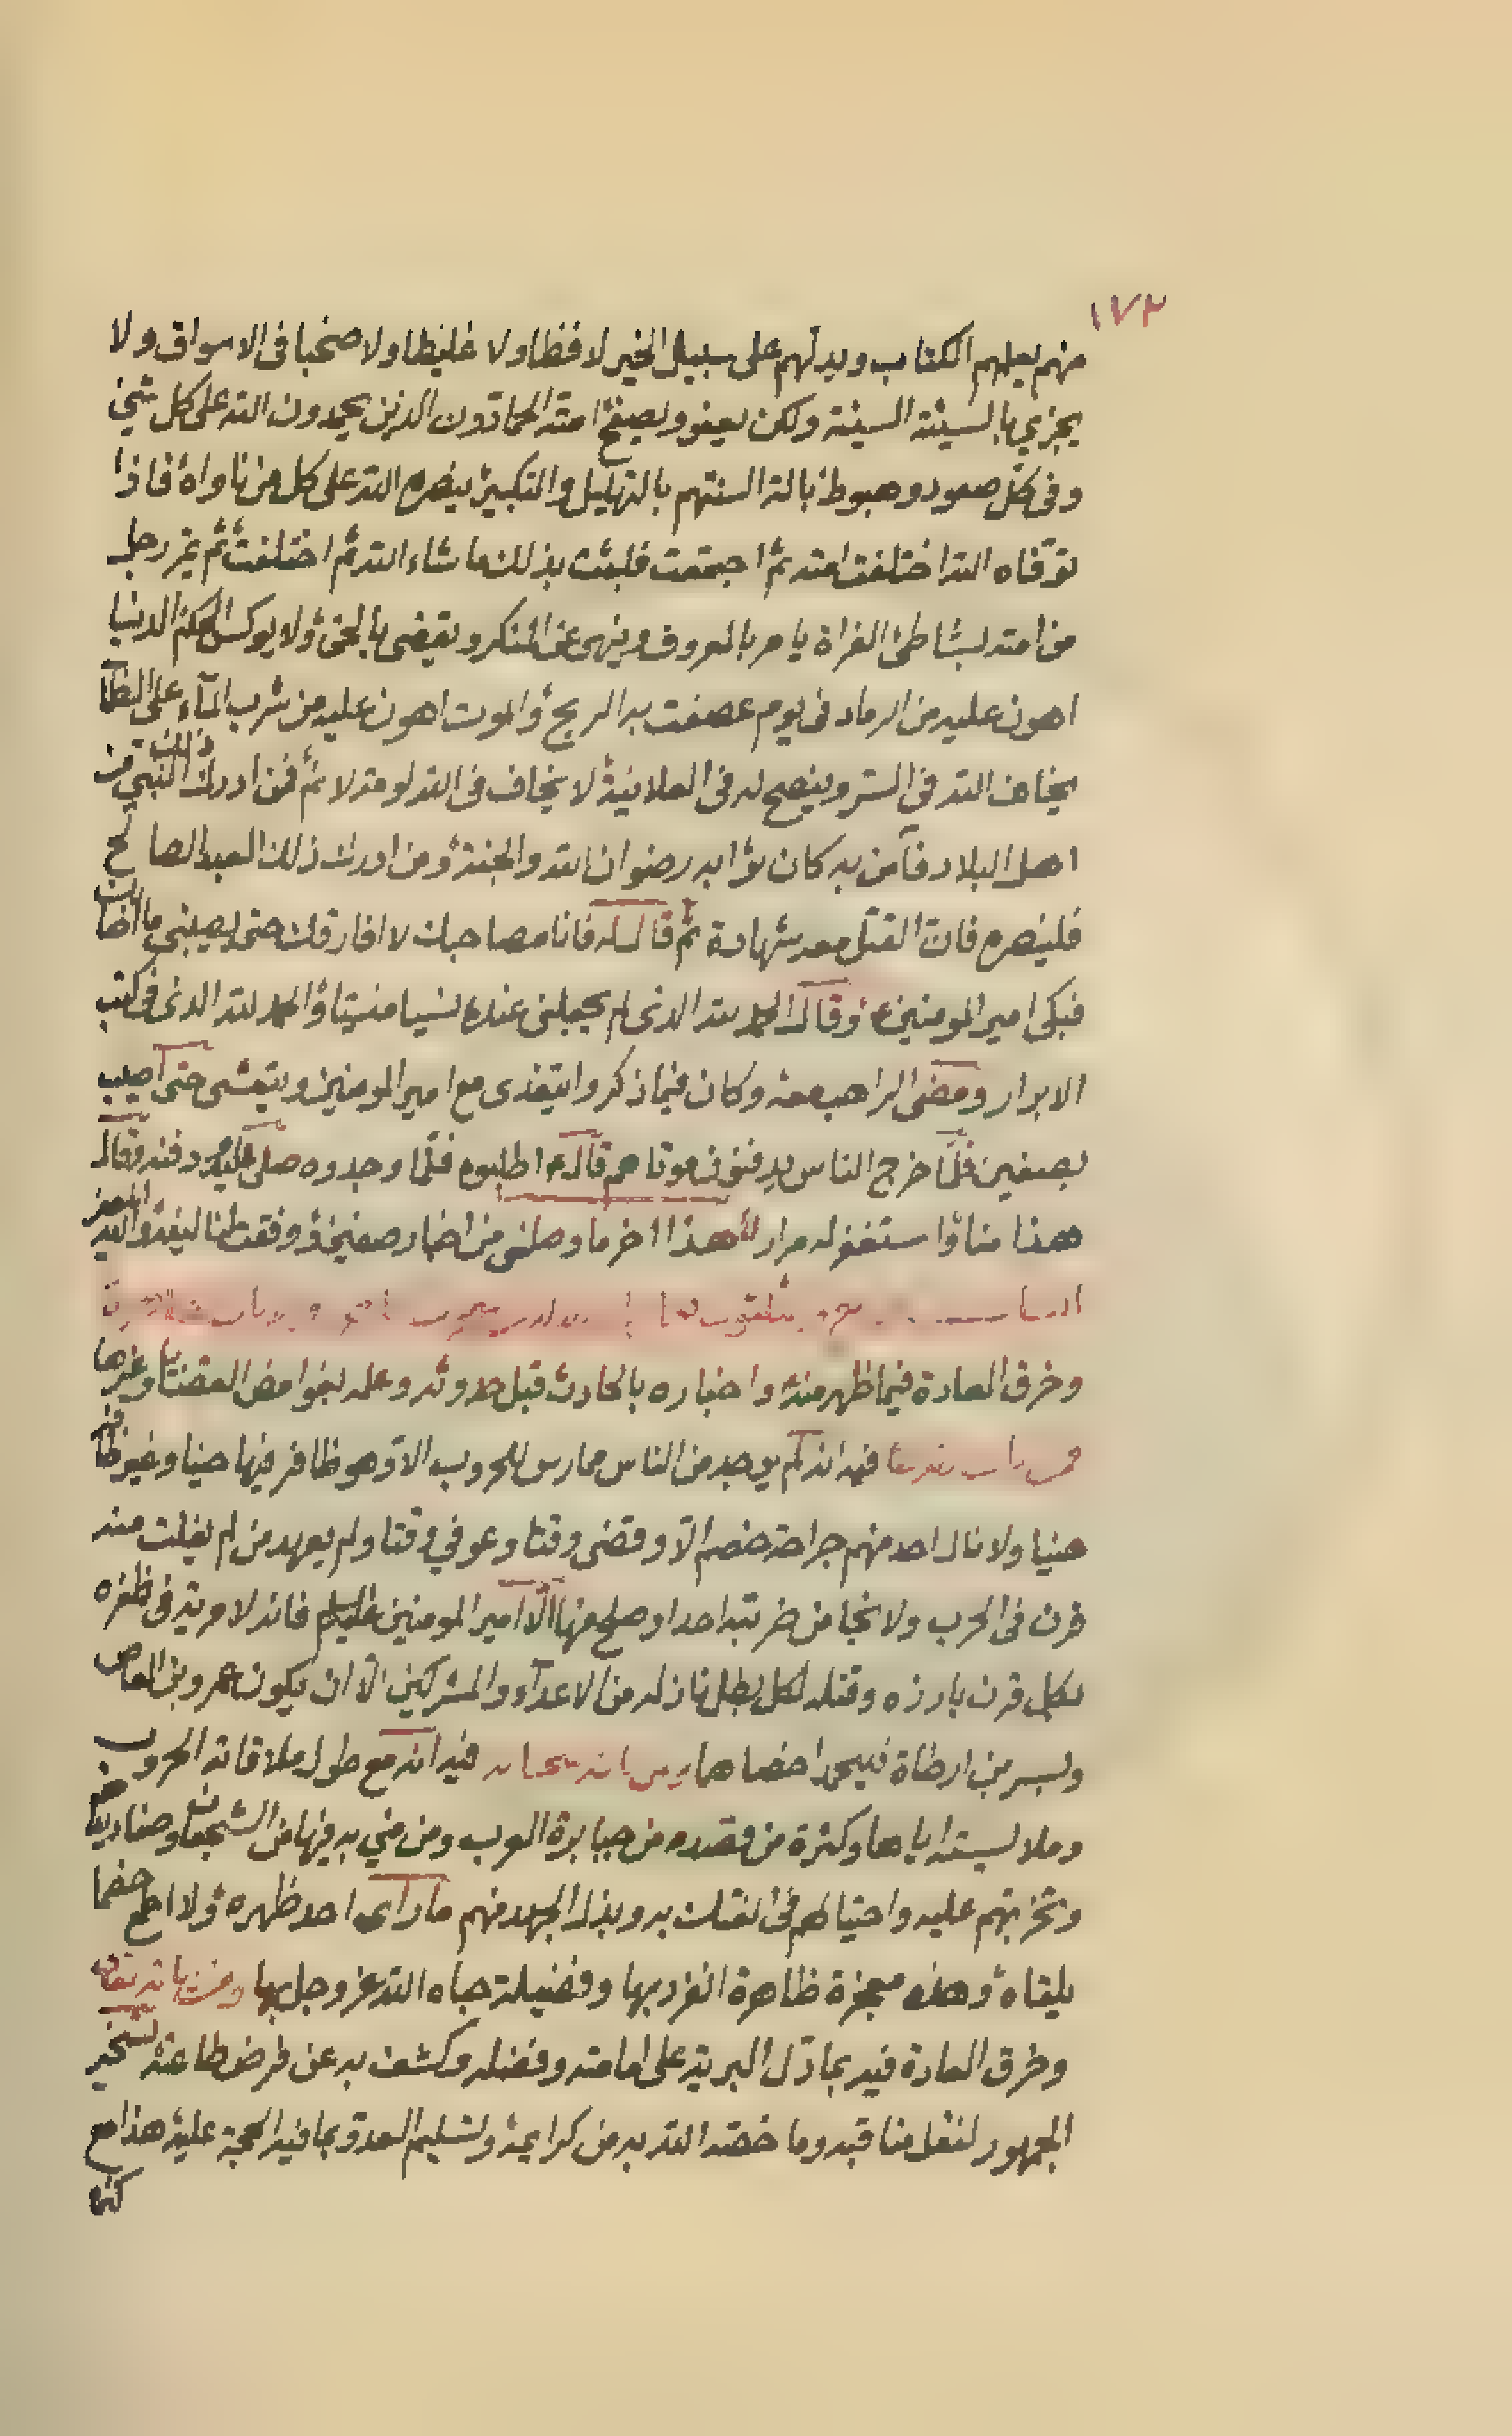 ١٧٢
منهم يعلمهم الكتاب ويدلهم على سبيل الخير لا فظا ولا غليظا ولا صخبا فى الاسواق ولا
يجزي بالسيئة السيئة ولكن يعفو ويصفح امته الحمادون الذين يحمدون الله على كل شئ
وفى كل صعود وهبوط تذل السنتهم بالتهليل والتكبير ينصره الله على كل من ناواه فاذا
توفاه الله اختلفت امته ثم اجتمعت فلبثت بذلك ما شاء الله ثم اختلفت ثم يمر رجل
من امته بشاطئ الفراة يامر بالمعروف وينهى عن المنكر ويقضى بالحق ولا يوكس الحكم الدنيا
اهون عليه من الرماد فى يوم عصفت به الريح والموت اهون عليه من شرب المآء على الظمآ
يخاف الله فى السر وينصح له فى العلانية لا يخاف فى الله لومة لائم فمن ادرك ذلك النبى من
اهل البلاد فآمن به كان ثوابه رضوان الله والجنة ومن ادرك ذلك العبد الصالح
فلينصره فان القتل معه شهادة ثم قال له فانا مصاحبك لا افارقك حتى يصيبنى ما اصابك
فبكى امير المومنينء وقال الحمد لله الذى لم يجعلنى عنده نسيا منسيا والحمد لله الذى فى كتب
الابرار ومضى الراهب معه وكان فيما ذكروا يتغذى مع امير المومنين ويتعشى حتى اصيب
بصفين فلما خرج الناس يدفنون موتاهم قالء اطلبوه فلما وجدوه صلى عليه ودفنه وقال
هذا منا واستغفر له مرارا هذا اخر ما وصلنى من اخبار صفين ووقعتنا ليفد والله
وخرق العادة فيما ظهر منه واخباره بالحادث قبل حدوثه وعلمه بغوامض القضايا وغيرها
فيه انه لم يوجد من الناس ممارس للحروب الا وهو ظافر فيها حينا وغير ظافر
حينا ولا نال احد منهم جراحة خصم الا وقضى وقتا وعوفي وقتا ولم يعهد من لم يفلت منه
قرن فى الحرب ولا نجا من ضربته احد وصلح منها الا امير المومنين عليلم فانه لا مرية فى ظفره
بكل قرن بارزه وقتله لكل بطل نازله من الاعدآء والمشركين الا ان يكون عمرو بن العاص
وبسر بن ارطاة فيه انه مع طول ملاقاته الحروب
وملابسته اياها وكثرة من قصده من جبابرة العرب ومن مني به فيها من الشجعان وصناديدهم
وتحزبهم عليه واحتيالهم فى الفتك به وبذل الجهد منهم ما راى احد ظهره ولا احجم خصما
بلقاه وهذه معجزة ظاهرة انفرد بها وفضيلة حباه الله عز وجل بها
وخرق العادة فيه بما دل البرية على امامته وفضله وكشف به عن فرض طاعته تسخير
الجمهور لنقل مناقبه وما خصه الله به من كرايمه وتسليم العدو بما فيه الحجة عليه هذا مع